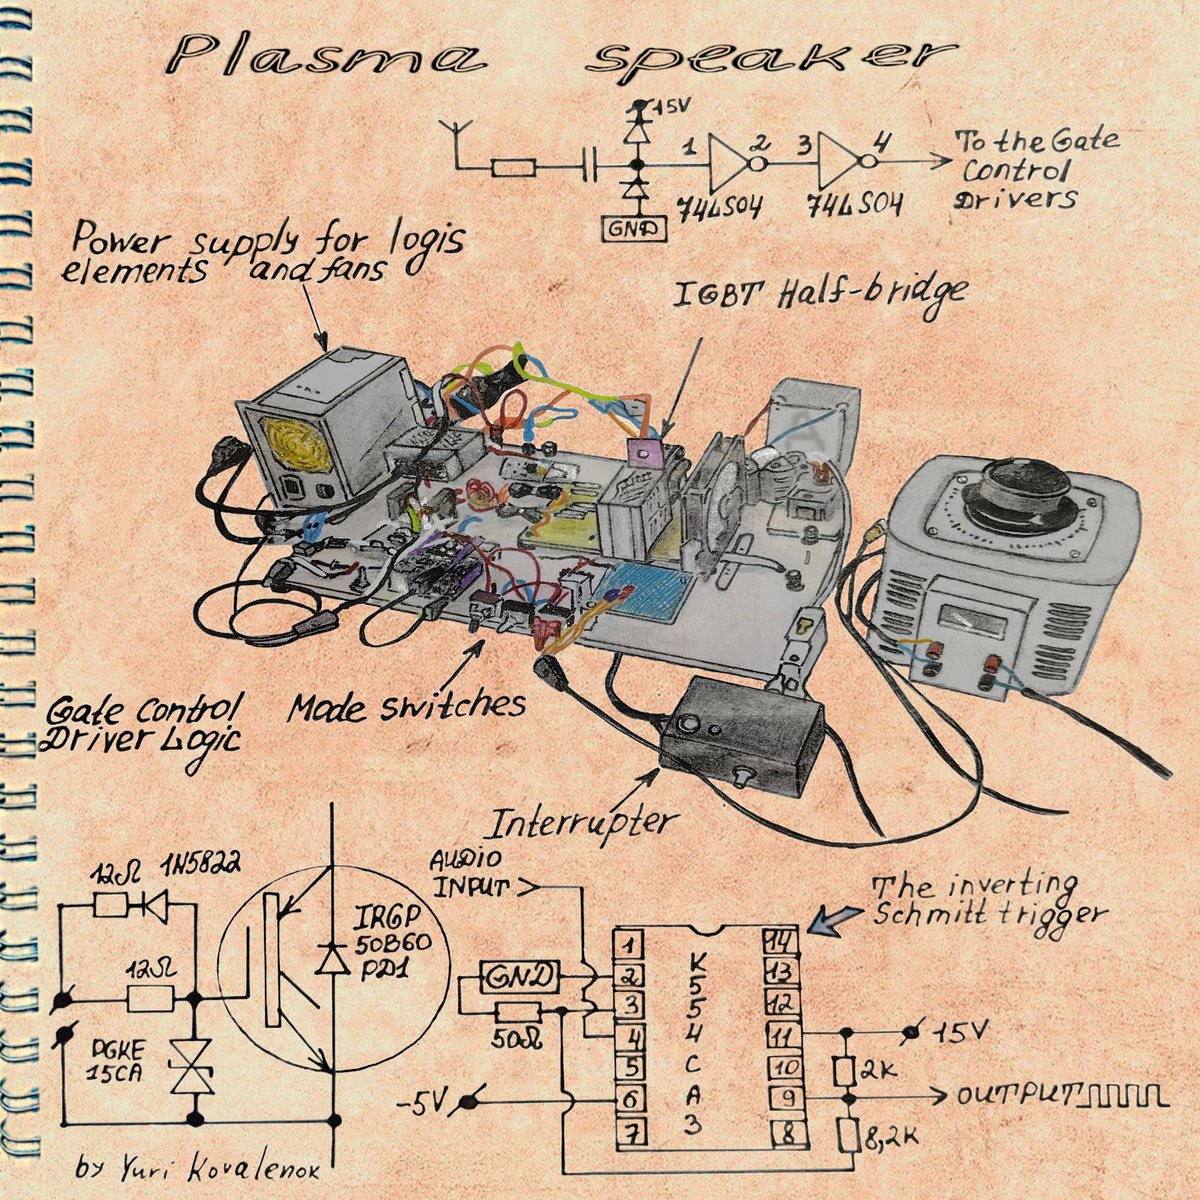 Plasma speaker
15V
1 2 3 4
74LS04 74LS04
GND
To the Gate
Control
Drivers
Power supply for logis
elements and fans
IGBT Half-bridge
Gate Control
Driver Logic
Mode switches
Interrupter
12Ω 1N5822
12Ω
PGKE
15CA
IRGP
50B60
PD1
AUDIO
INPUT
The inverting
Schmitt trigger
GND
50Ω
-5V
1
2
3
4
5
6
7
K
5
5
4
C
A
3
14
13
12
11
10
9
8
15V
2K
OUTPUT
8,2K
by Yuri Kovalenok